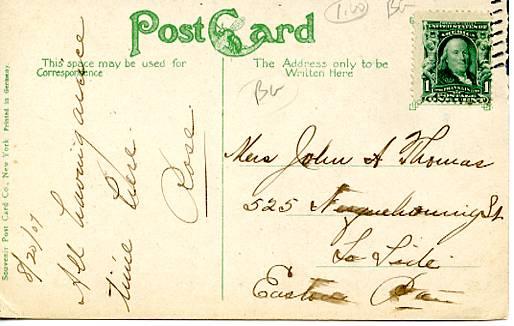 Post Card
1.00
BG
This space may be used for
Correspondence
The Address only to be
Written Here
BG
UNITED STATES OF AMERICA
1 FRANKLIN 1
POSTAGE
Souvenir Post Card Co., New York Printed in Germany.
8/20/07
All having a nice
time here.
Rose.
Mrs John A Thomas
525 St
So Side
Easton Pa